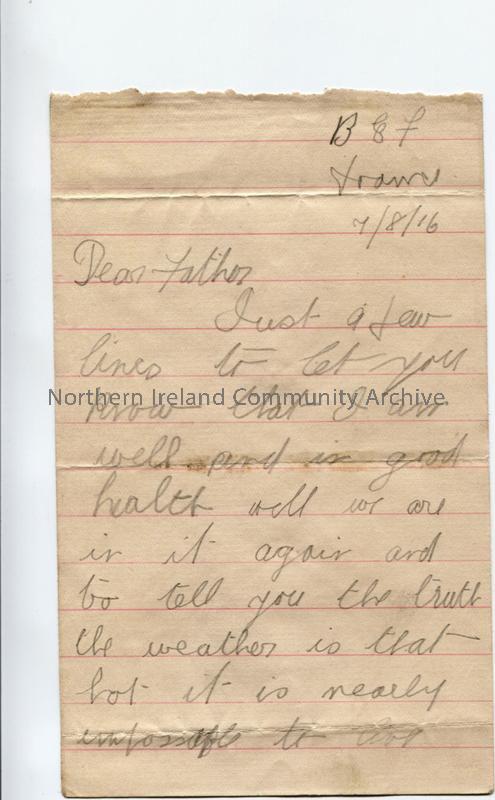 B E F
France
7/8/16
Dear Father
Just a few
lines to let you
know that I am
Northern Ireland Community Archive
well and in good
health well we are
in it again and
to tell you the truth
the weather is that
hot it is nearly
impossible to live